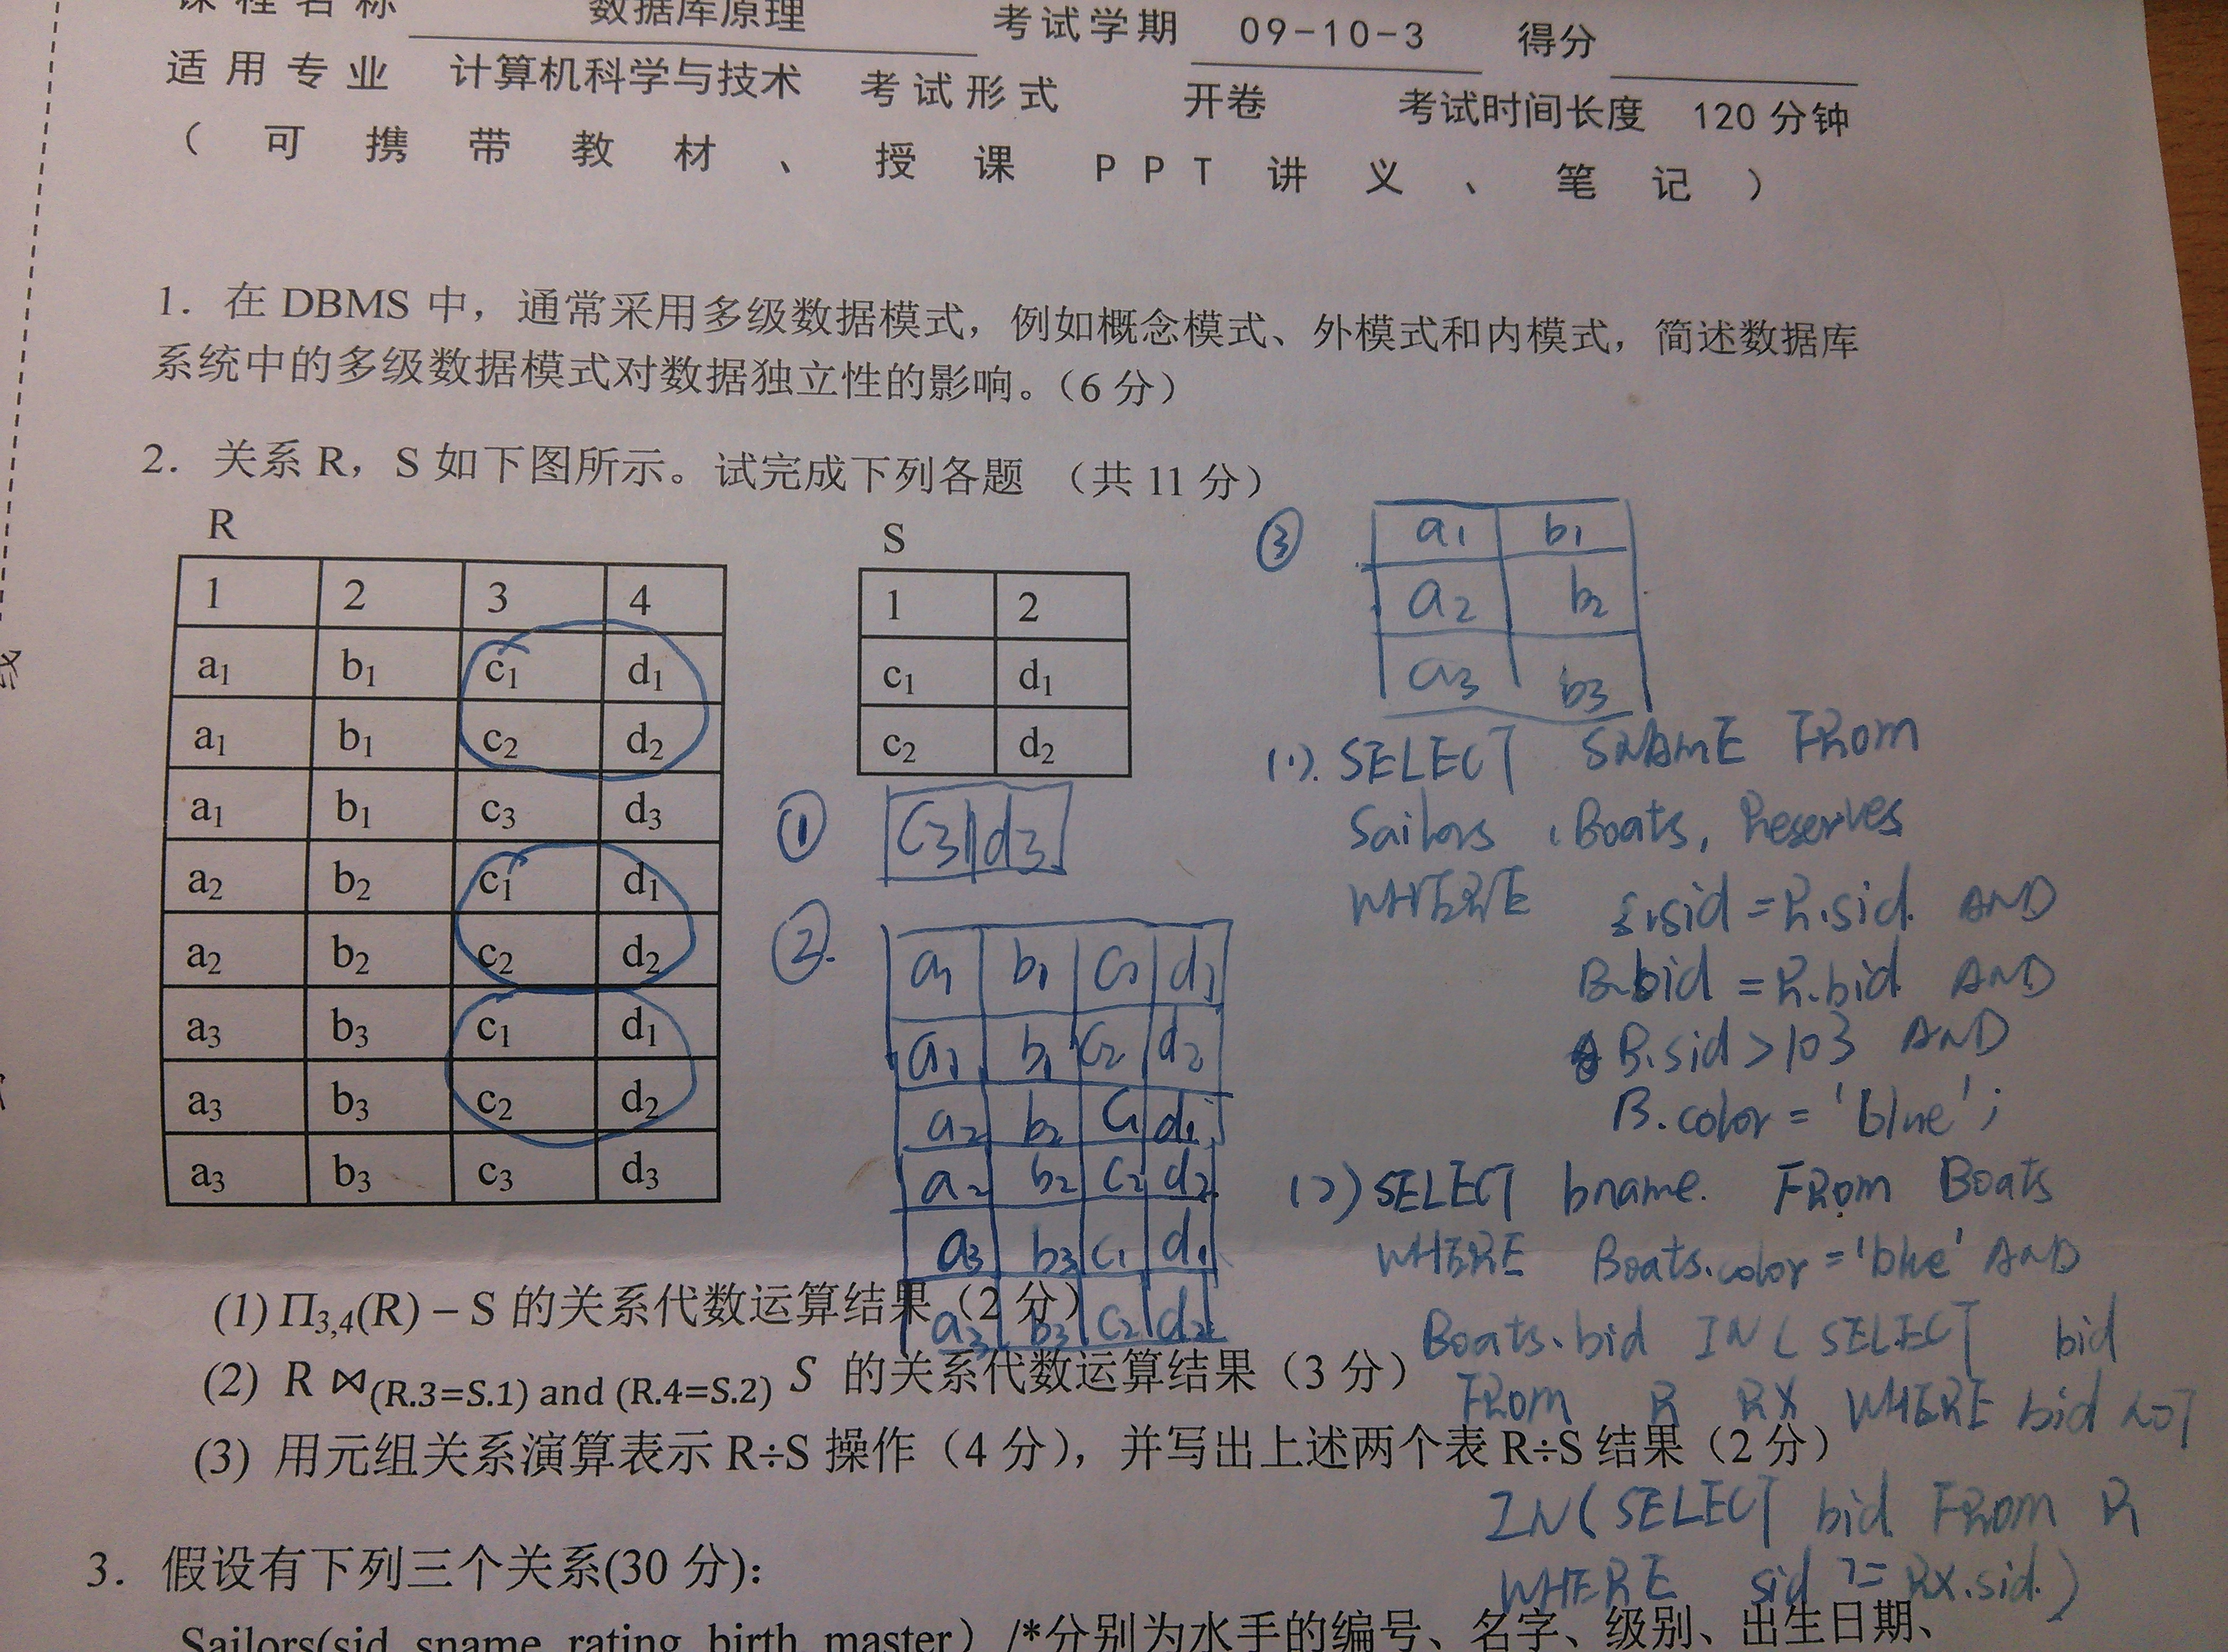 课程名称 数据库原理 考试学期 09-10-3 得分
适用专业 计算机科学与技术 考试形式 开卷 考试时间长度 120 分钟
（可携带教材、授课PPT讲义、笔记）
1. 在 DBMS 中，通常采用多级数据模式，例如概念模式、外模式和内模式，简述数据库
系统中的多级数据模式对数据独立性的影响。（6 分）
2. 关系 R，S 如下图所示。试完成下列各题 （共 11 分）
R
1 2 3 4
a1 b1 c1 d1
a1 b1 c2 d2
a1 b1 c3 d3
a2 b2 c1 d1
a2 b2 c2 d2
a3 b3 c1 d1
a3 b3 c2 d2
a3 b3 c3 d3
S
1 2
c1 d1
c2 d2
① c3 d3
②.
a1 b1 c1 d1
a1 b1 c2 d2
a2 b2 c1 d1
a2 b2 c2 d2
a3 b3 c1 d1
a3 b3 c2 d2
③
a1 b1
a2 b2
a3 b3
(1). SELECT SNAME FROM
Sailors , Boats, Reserves
WHERE S.sid = R.sid. AND
B.bid = R.bid AND
B.sid > 103 AND
B.color = 'blue';
(2) SELECT bname. FROM Boats
WHERE Boats.color = 'blue' AND
Boats.bid IN ( SELECT bid
FROM R RX WHERE bid NOT
IN ( SELECT bid FROM R
WHERE sid ㄱ= RX.sid.)
(1) Π3,4(R) − S 的关系代数运算结果（2 分）
(2) R ⋈(R.3=S.1) and (R.4=S.2) S 的关系代数运算结果（3 分）
(3) 用元组关系演算表示 R÷S 操作（4 分），并写出上述两个表 R÷S 结果（2 分）
3. 假设有下列三个关系(30 分):
Sailors(sid, sname, rating, birth, master） /*分别为水手的编号、名字、级别、出生日期、